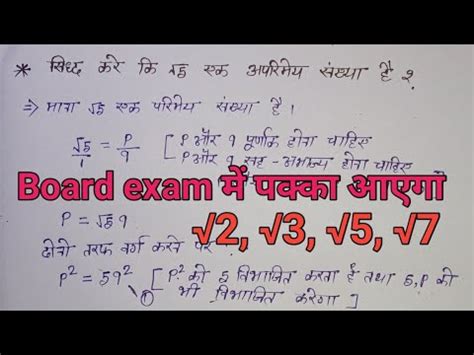 * सिद्ध करे कि √5 एक अपरिमेय संख्या है ?
⇒ माना √5 एक परिमेय संख्या है।
√5/1 = P/q [ P और q पूर्णांक होना चाहिए
P और q सह-अभाज्य होना चाहिए
Board exam में पक्का आएगा
√2, √3, √5, √7
P = √5 q
दोनो तरफ वर्ग करने पर
P² = 5q² [ P² को 5 विभाजित करता है तथा 5, P को
① भी विभाजित करेगा ]